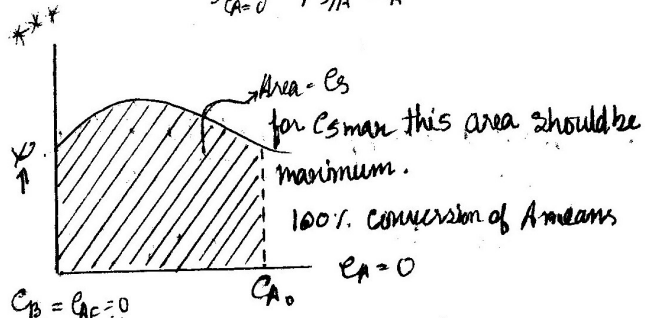 ***
Area = Cs
for Csmax this area should be
maximum.
100% conversion of A means
CA = 0
φ
↑
CA0
CB = CAf = 0